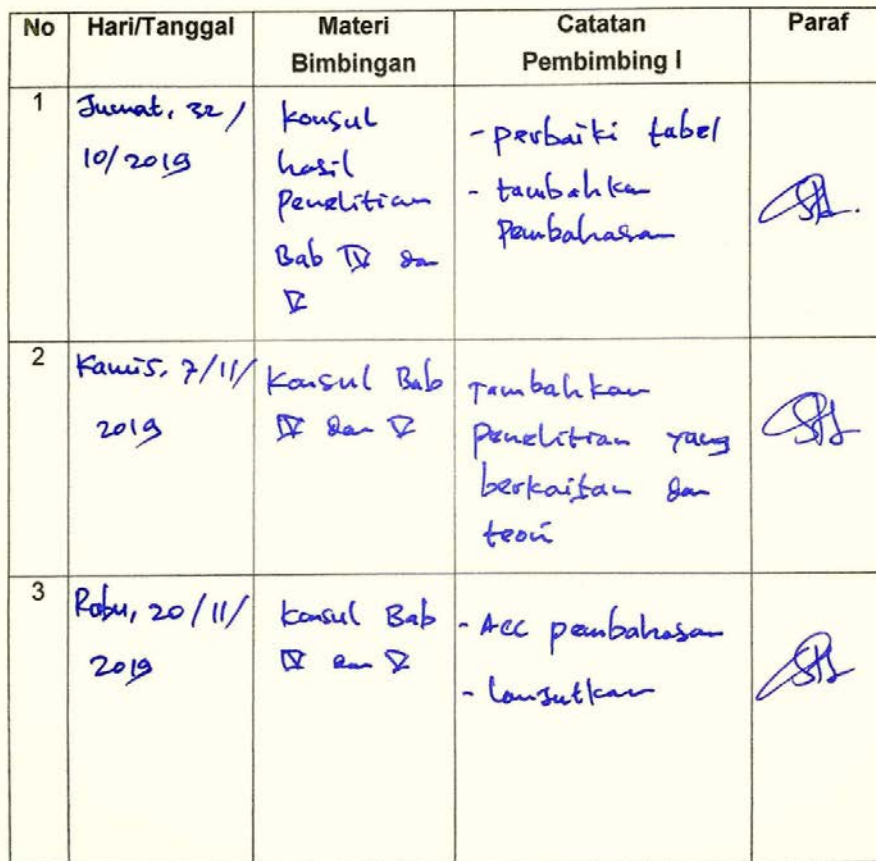 No Hari/Tanggal Materi Bimbingan Catatan Pembimbing I Paraf
1
Jumat, 32/
10/2019
Konsul
hasil
Penelitian
Bab IV dan
V
- perbaiki tabel
- tambahkan
Pembahasan
2
Kamis, 7/11/
2019
Konsul Bab
IV dan V
Tambahkan
Penelitian yang
berkaitan dan
teori
3
Rabu, 20/11/
2019
Konsul Bab
IV dan V
- ACC pembahasan
- lanjutkan